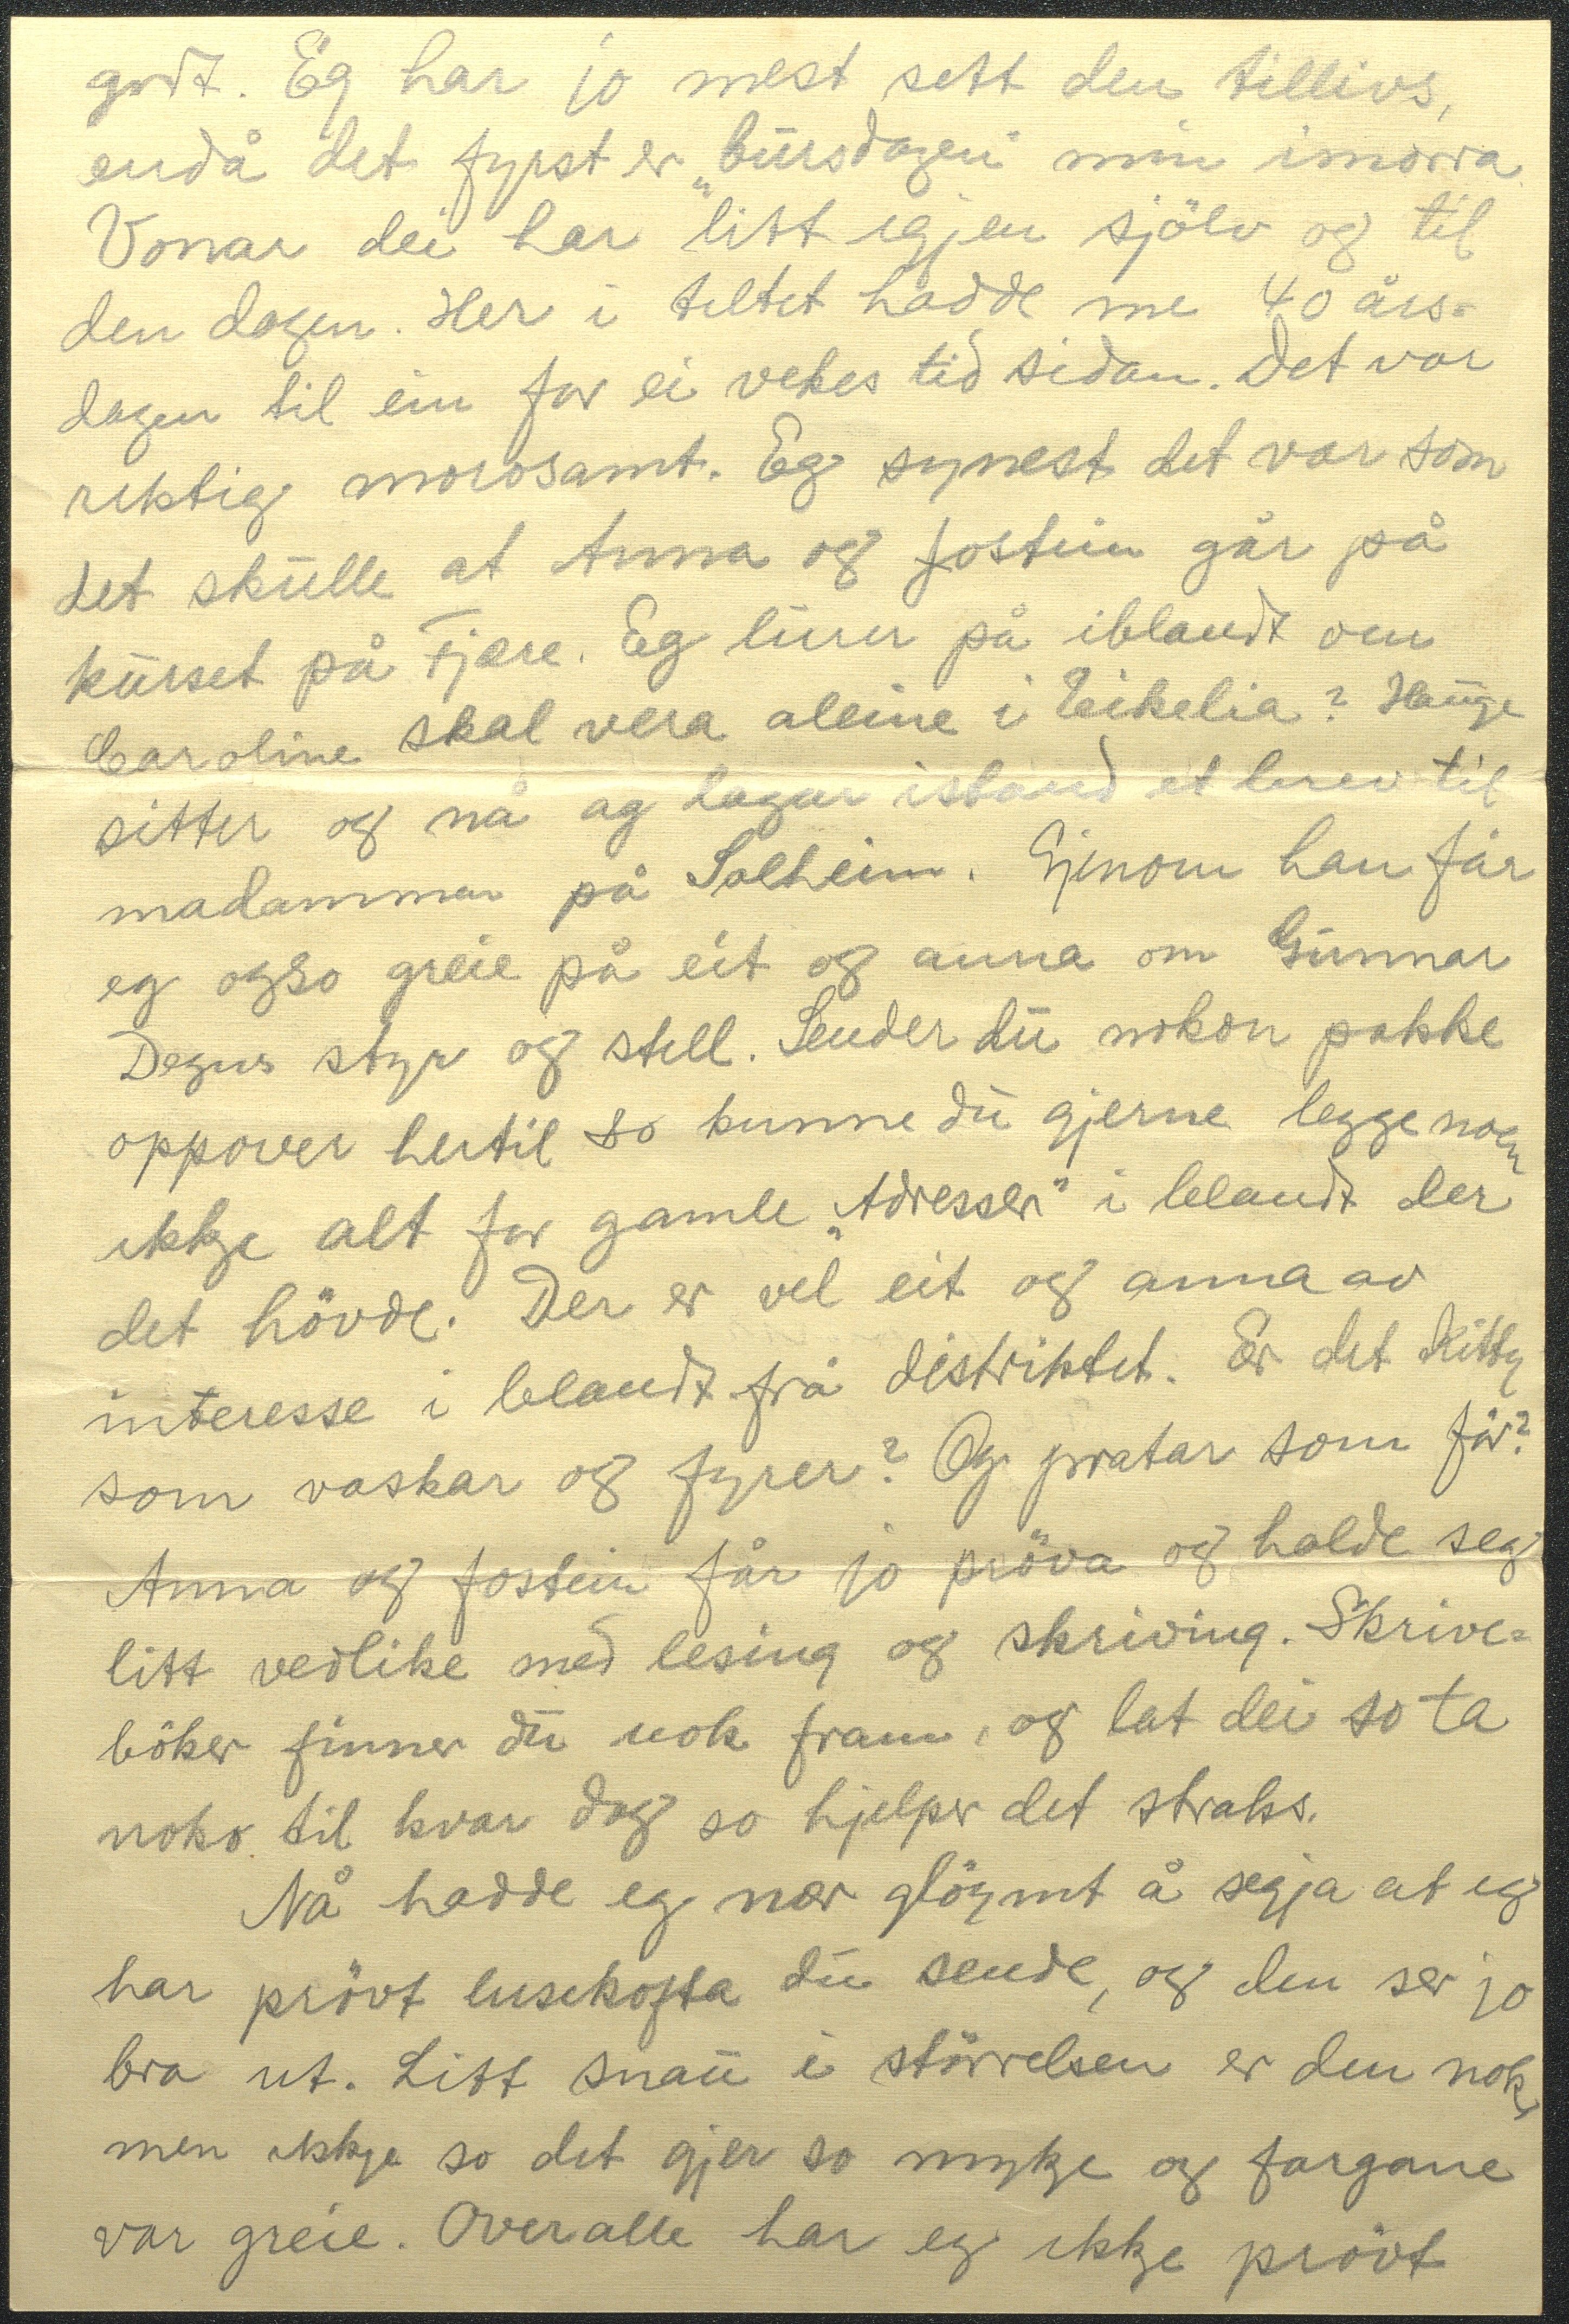 godt. Eg har jo mest sett den tillivs,
endå det fyrst er „bursdagen" min imorra.
Vonar dei har litt igjen sjölv og til
den dagen. Her i teltet hadde me 40 års-
dagen til ein for ei vekes tid sidan. Det var
riktig morosamt. Eg synest det var som
det skulle at Anna og Jostein går på
kurset på Fjære. Eg lurer på iblandt om
Caroline skal vera aleine i Eikelia? Hauge
sitter og nå og lagar istand et brev til
madammen på Solheim. Gjenom han får
eg ogso greie på eit og anna om Gunnar
Degnes styr og stell. Sender du nokon pakke
oppover hertil so kunne du gjerne legge noen
ikkje alt for gamle „Adresser" i blandt der
det hövde. Der er vel eit og anna av
interesse i blandt frå distriktet. Er det Kitty
som vaskar og fyrer? Og pratar som för?
Anna og Jostein får jo pröva og halde seg
litt vedlike med lesing og skriving. Skrive-
böker finner du nok fram, og lat dei so ta
noko til kvar dag so hjelper det straks.
Nå hadde eg nær glöymt å segja at eg
har prövt lusekofta du sende, og den ser jo
bra ut. Litt snau i störrelsen er den nok,
men ikkje so det gjer so mykje og fargane
var greie. Overalle har eg ikkje prövt